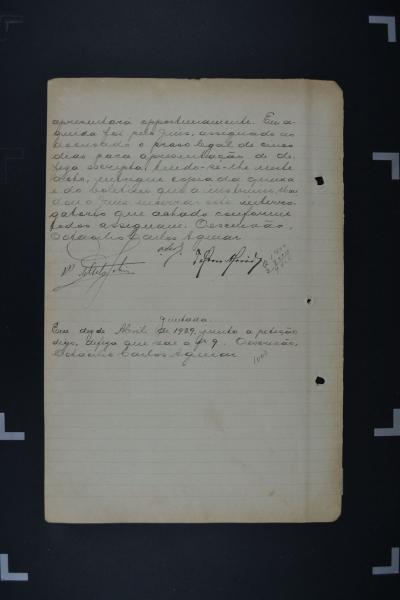 apresentará opportunamente. Em se-
guida foi pelo Juiz, assignado ao
accusado o praso legal de cinco
dias para apresentação de de-
feza escripta, sendo-se-lhe neste
acto, entregue copia da queixa
e do boletim que a instruiu. Man-
dou o Juiz encerrar este interro-
gatorio que achado conforme
todos assignam. O escrivão,
Octacilio Carlos Aguiar
Juntada
Em de Abril de 1929, junto a petição
digo, defeza que vae a fls 9. O escrivão,
Octacilio Carlos Aguiar